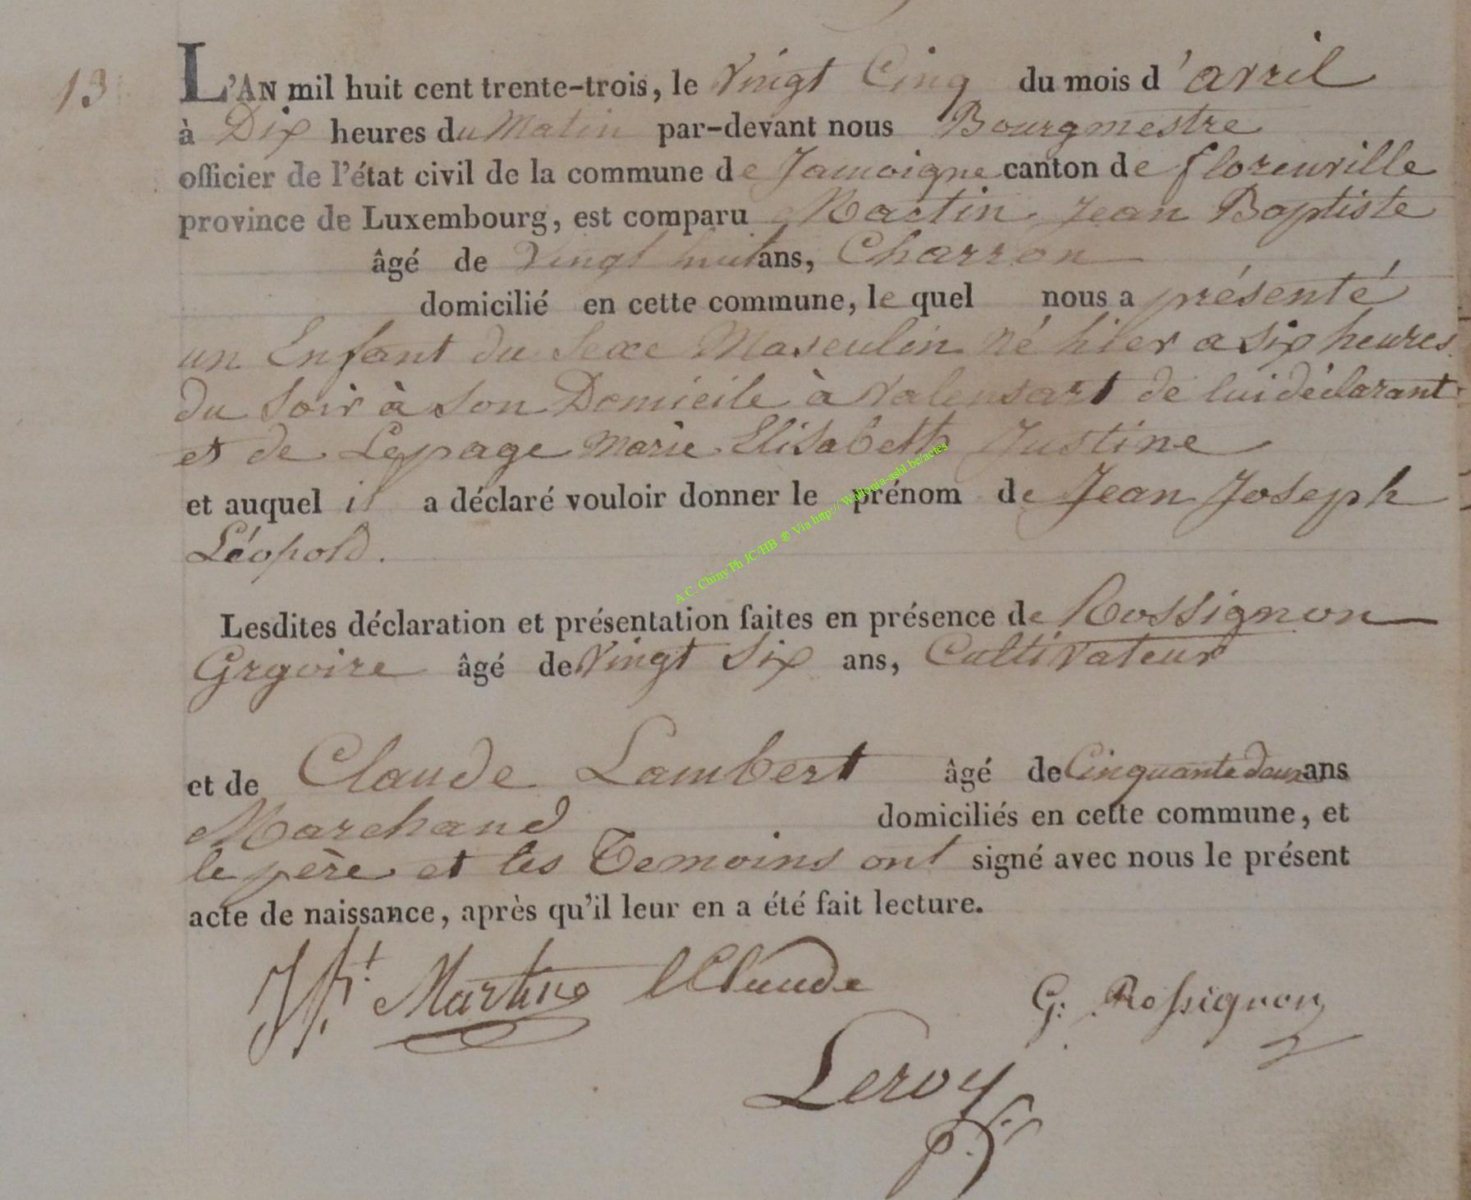 13
L'AN mil huit cent trente-trois, le Vingt Cinq du mois d'avril
à Dix heures du Matin par-devant nous Bourgmestre
officier de l'état civil de la commune de Jamoigne canton de florenville
province de Luxembourg, est comparu Martin Jean Baptiste
âgé de Vingt huit ans, Charron
domicilié en cette commune, le quel nous a présenté
un Enfant du Sexe Masculin né hier a six heures
du Soir à Son Domicile à Valensart de lui déclarant
et de Lepage Marie Elisabeth Justine
et auquel il a déclaré vouloir donner le prénom de Jean Joseph
Léopold.
A.C. Chiny Ph JC HB ® Via http://wallonia-asbl.be/actes
Lesdites déclaration et présentation faites en présence de Rossignon
Grgoire âgé de Vingt Six ans, Cultivateur
et de Claude Lambert âgé de Cinquante deux ans
Marchand domiciliés en cette commune, et
le père et les Temoins ont signé avec nous le présent
acte de naissance, après qu'il leur en a été fait lecture.
Martin LClaude G. Rossignon
Leroy